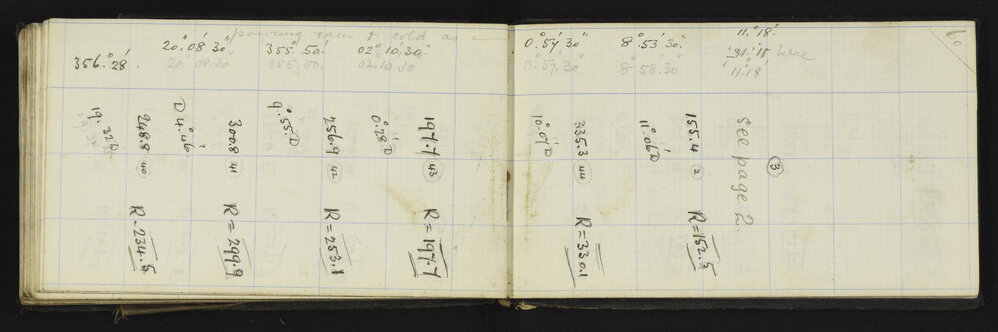 pouring rain & cold as
20° 08' 30"
355° 50'
02° 10' 30"
356° 28'.
20. 08. 30
355. 50.
02. 10 30
19. 32 D
248.8 (40) R = 234.5
D 4° 46'.
300.8 (41) R = 299.9
9° 55' D
256.9 (42) R = 253.1
0° 28' D
197.7 (43) R = 197.7
60
0° 57' 30"
8° 53' 30"
11° 18'
before
0° 57. 30"
8° 58. 30"
11° 18'
10° 07' D
335.3 (44) R = 330.1
11° 06' D
155.4 (2) R = 152.5
see page 2.
(3)